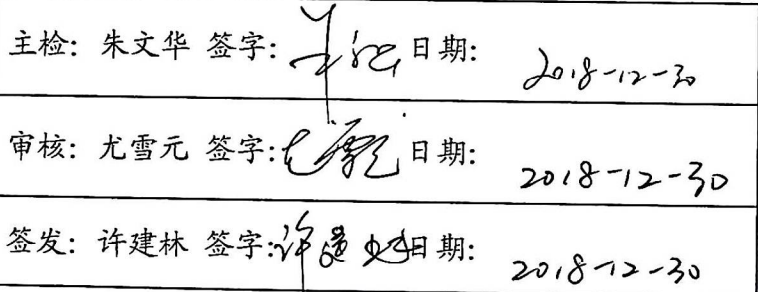 主检：朱文华 签字： 日期： 2018-12-30
审核：尤雪元 签字： 日期： 2018-12-30
签发：许建林 签字：许建林 日期： 2018-12-30